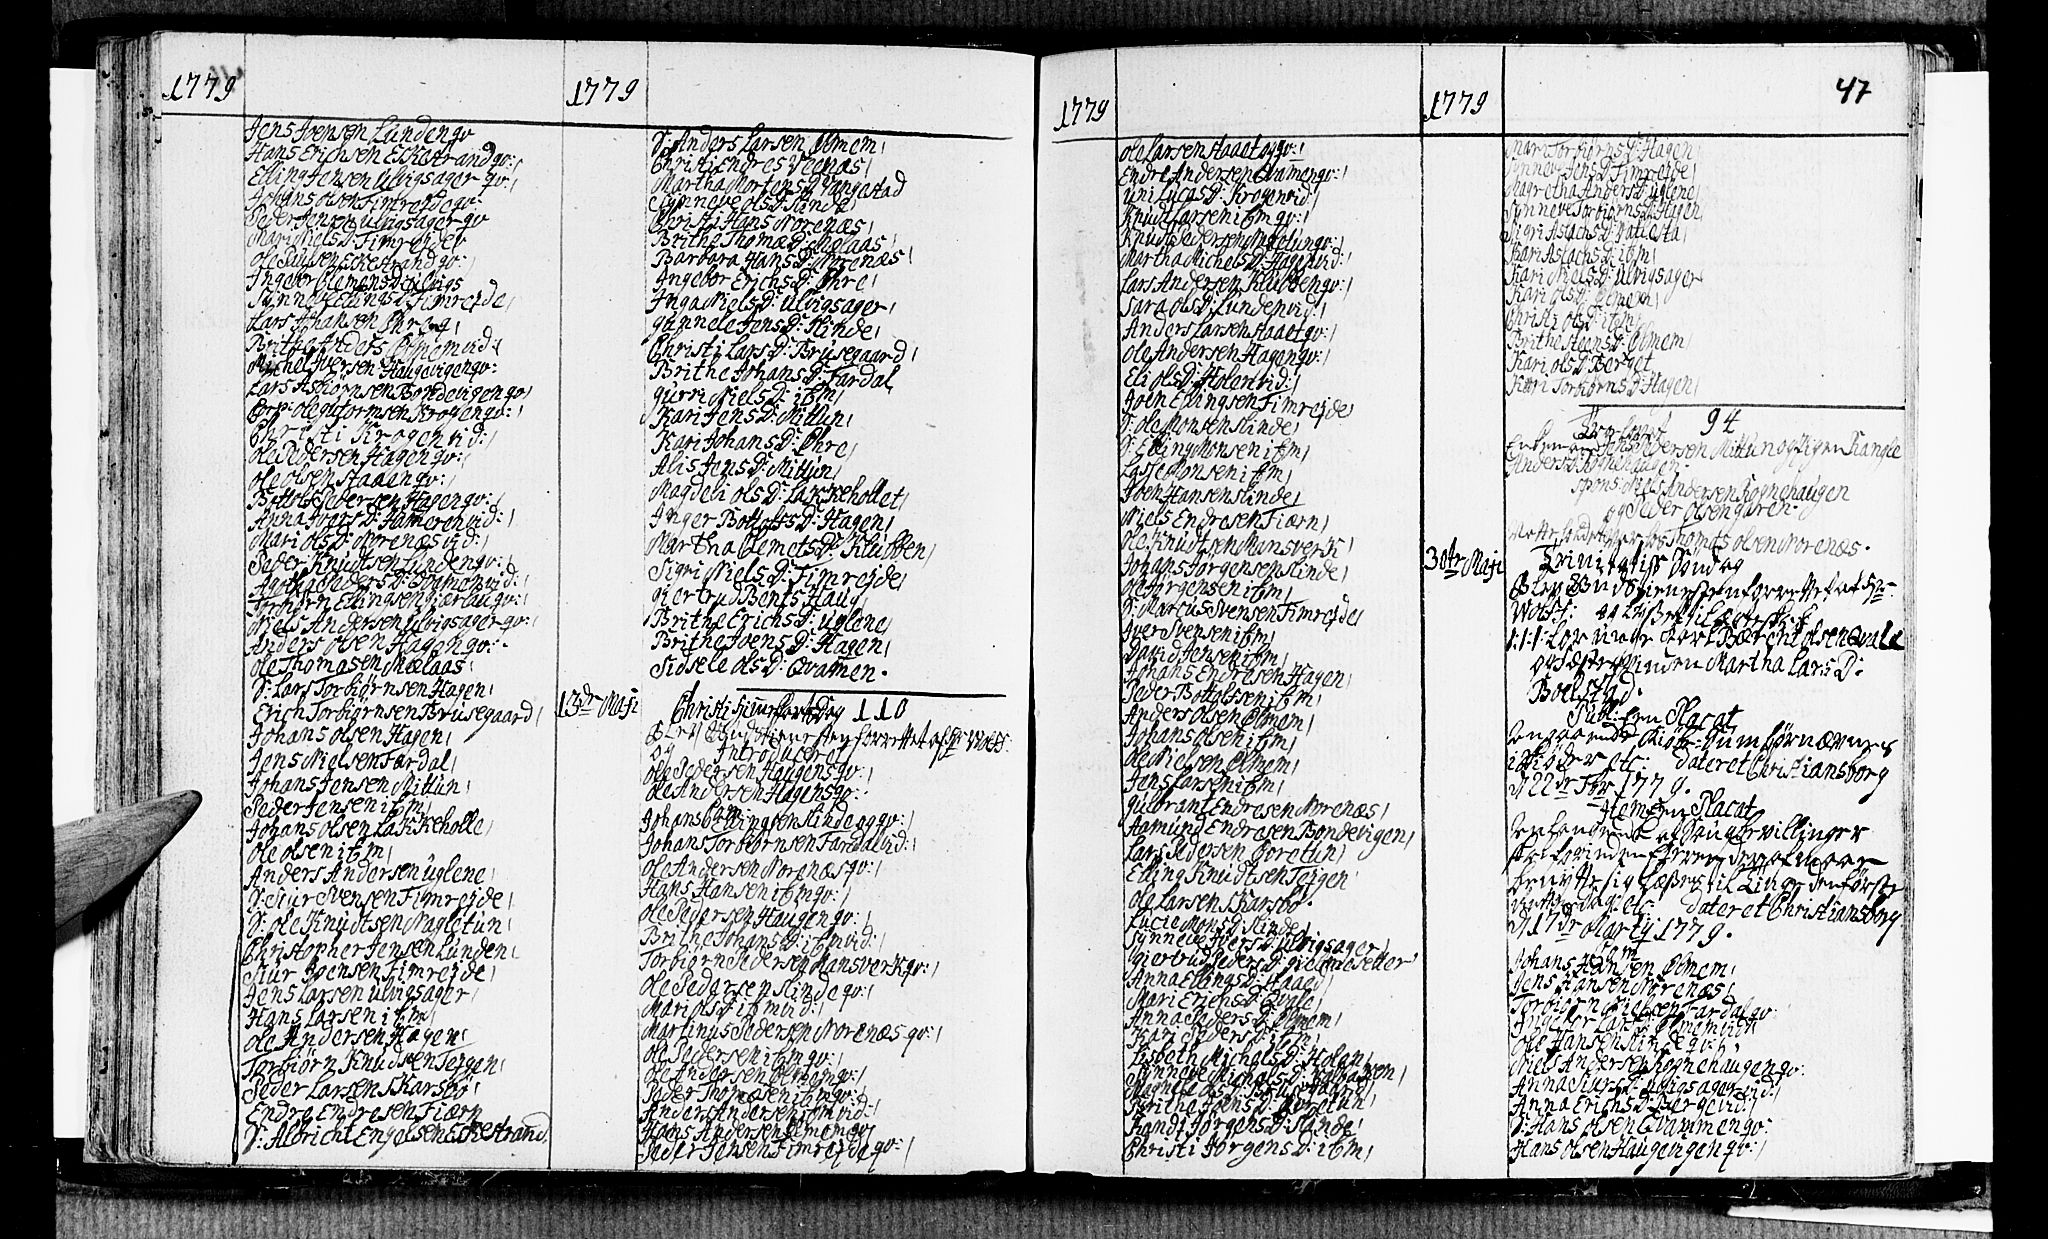 1779
Jens Ivensen Lunden qv
Hans Erichsen Eckestrand qv:/
Elling Jensen Ulvigsager qv:/
Johans Olsen Fimreide qv:
Peder Jensen Ulvigsager qv
Mari Niels D: Fimreide
Ole Paulsen Eckestrand qv:/
Ingebor Clemens D:
Synneve Ellings D: Fimreide/
Lars Johansen Øhre
Brithe Anders Ølmem vid:/
Michel Iversen Haugevigen qv:
Lars Asbiørnsen Bondevigen qv/
Corp: Ole Guttormsen Krogen qv:/
Christi Krogen vid:/
Ole Pedersen Hagen qv:/
Ole Olsen Staaen qv:/
Bottolf Pedersen Hagen qv:/
Anna Ivers D: Hameren vid:/
Mari Ols D: Norenæs vid:/
Peder Knudtsen Lunden qv:/
Agatha Peders D: vid:/
Torbiørn Ellingsen Hiærlaug qv:/
Niels Andersen Ulvigsager qv:/
Anders Olsen Hagen qv:
Ole Thomasen Mælaas
S: Lars Torbiørnsen Hagen/
Erich Torbiørnsen Brusegaard/
Johans Olsen Hagen/
Jens Nielsen Fardal/
Johans Jensen Mittun/
Peder Jensen ibm/
Johans Olsen Lakkeholle/
Ole Olsen ibm/
Anders Andersen Uglene/
S: Siur Svensen Fimreide/
S: Ole Knudtsen Nagletun/
Christopher Jensen Lunden/
Siur Joensen Fimreide/
Jens Larsen Ulvigsager/
Hans Larsen ibm/
Ole Andersen Hagen/
Torbiørn Knudsen Teigen/
Peder Larsen Skarsbø/
Endre Endresen Fiærn
S: Albricht Engelsen Eckestrand
1779
S: Anders Larsen Ølmem/
Christi Endres Venæs/
Martha Mortens D: Vangestad
Synneve Ols D: Sande/
Christi Hans Norenæs/
Brithe Thomæ D: Mælaas/
Barbara Hans D: Norenæs/
Ingebor Erichs D: Øhre/
Inga Niels D: Ulvigsager/
Gunnele Jens D: Slinde/
Christi Lars D: Brusegaard/
Brithe Johans D: Fardal
Gurri Niels D: ibm/
Kari Jens D: Mittun/
Kari Johans D: Øhre/
Alis Jens D: Mittun/
Magdeli Ols D: Lakkehollet/
Inger Bottolfs D: Hagen/
Martha Clemets D: Klubben/
Sigri Niels D: Fimreide/
Giertrud Bents Haug/
Brithe Erichs D: Uglene/
Brithe Joens D: Hagen/
Sidsele Ols D: Qvamen.
13de Maji
Christi Himmelfarts Dag 110
Blev Gudstienesten forrettet af Hr: Wolff:
og Introduceret
Ole Pedersen Haugen qv:/
Ole Andersen Hagen qv:
Com
Johans Ellingsen Slinde og qv:/
Johans Torbiørnsen Fardal vid:/
Ole Andersen Norenæs qv:/
Hans Hansen ibm qv:/
Ole Pedersen Haugen qv:/
Brithe Johans D: ibm vid:/
Torbiørn Pedersen Mansverk qv:/
Ole Pedersen Slinde qv:/
Mari Ols D: ibm vid:/
Martinus Pedersen Norenæs qv:/
Ole Pedersen ibm qv:/
Ole Andersen Ølmem qv:/
Peder Thomæsen ibm qv:/
Anders Andersen ibm vid:/
Hans Andersen Ølmem qv/
Peder Jensen Fimreide qv:/
1779
Ole Larsen Staaet og qv:/
Endre Andersen Qvamen qv:/
Uni Lucas D: Krogen vid:/
Knudt Larsen ibm qv:/
Knudt Pedersen Nagletun qv:/
Martha Michels D: Hagen vid:/
Lars Andersen Klubben qv:/
Sara Ols D: Lunden vid:/
Anders Larsen Staaet qv:/
Ole Andersen Hagen qv:/
Eli Ols D: Holen vid:/
Joen Ellingsen Fimreide/
S: Ole Monsen Slinde/
S: Elling Monsen ibm/
Lasse Monsen ibm/
Joen Hansen Slinde/
Niels Endresen Fiærn/
Ole Knudtsen Mansverk/
Johans Jørgensen Slinde/
Ole Jørgensen ibm/
S: Marcus Svensen Fimreide/
Iver Svensen ibm/
David Jensen ibm/
Johans Endresen Hagen/
Peder Bottolfsen ibm/
Anders Olsen Ølmem/
Johans Olsen ibm/
Ole Nielsen Ølmem/
Jens Larsen ibm/
Gulbrant Endresen Norenæs/
Aamund Endresen Bondevigen/
Lars Pedersen Noretun/
Elling Knudtsen Teigen/
Ole Larsen Skarsbø.
Lucie Mons D: Slinde/
Synneve Ivers D: Ulvigsager/
Giertrud Peders D: Gielmesetter
Anna Ellings D: Staaed/
Mari Erichs D: Qvale/
Anna Peders D: Ølmem/
Kari Peders D: ibm/
Lisbeth Michels D: Holen/
Synneve Michels D:
Brithe Joens D: Noretun/
Randi Jørgens D: Slinde/
Christi Jørgens D: ibm/
1779
47
Mari Torbiørns D: Hagen/
Synneve Jens D: Fimreide/
Magretha Anders D: Uglene/
Synneve Torbiørns D: Hagen/
Sigri Aslachs D:
Kari Aslachs D: ibm/
Kari Niels D: Ulvigsager
Kari Ols D: Ølmem/
Christi Ols D: ibm/
Brithe Steens D: Ølmem/
Kari Ols D: Berget
Kari Torbiørns D: Hagen/
94
Trolovet
Enkem: Jens Pedersen Mittun og Pigen Ragnle
Anders D: Rognehaugen.
Spons: Niels Andersen Rognehaugen
og Peder Olsen Garen.
Thomas Olsen Norenæs.
30te Maji
Trinitatis Søndag
Blev Gudstienesten forrettet af Hr:
Wolff:
Bærent Olsen Qvale
Qvinden Martha Lars D:
Bolstad.
Publ: een Placat
angaaende
etc: dateret Christiansborg
d 22de Febr 1779.
Item een Placat
etc: dateret Christiansborg
d 17de Martij 1779.
Com
Johans Hansen Ølmem/
Jens Hansen Norenæs/
Torbiørn Nielsen Fardal qv:
Ingebor Lars D: Ølmem vid:/
Ole Hansen Slinde qv:/
Niels Andersen Rognehaugen qv:
Anna Siurs D: Ulvigsager vid:/
Anna Erichs D: Berge vid:/
S: Hans Olsen Qvammen qv:
Hans Olsen Haugevigen qv:/